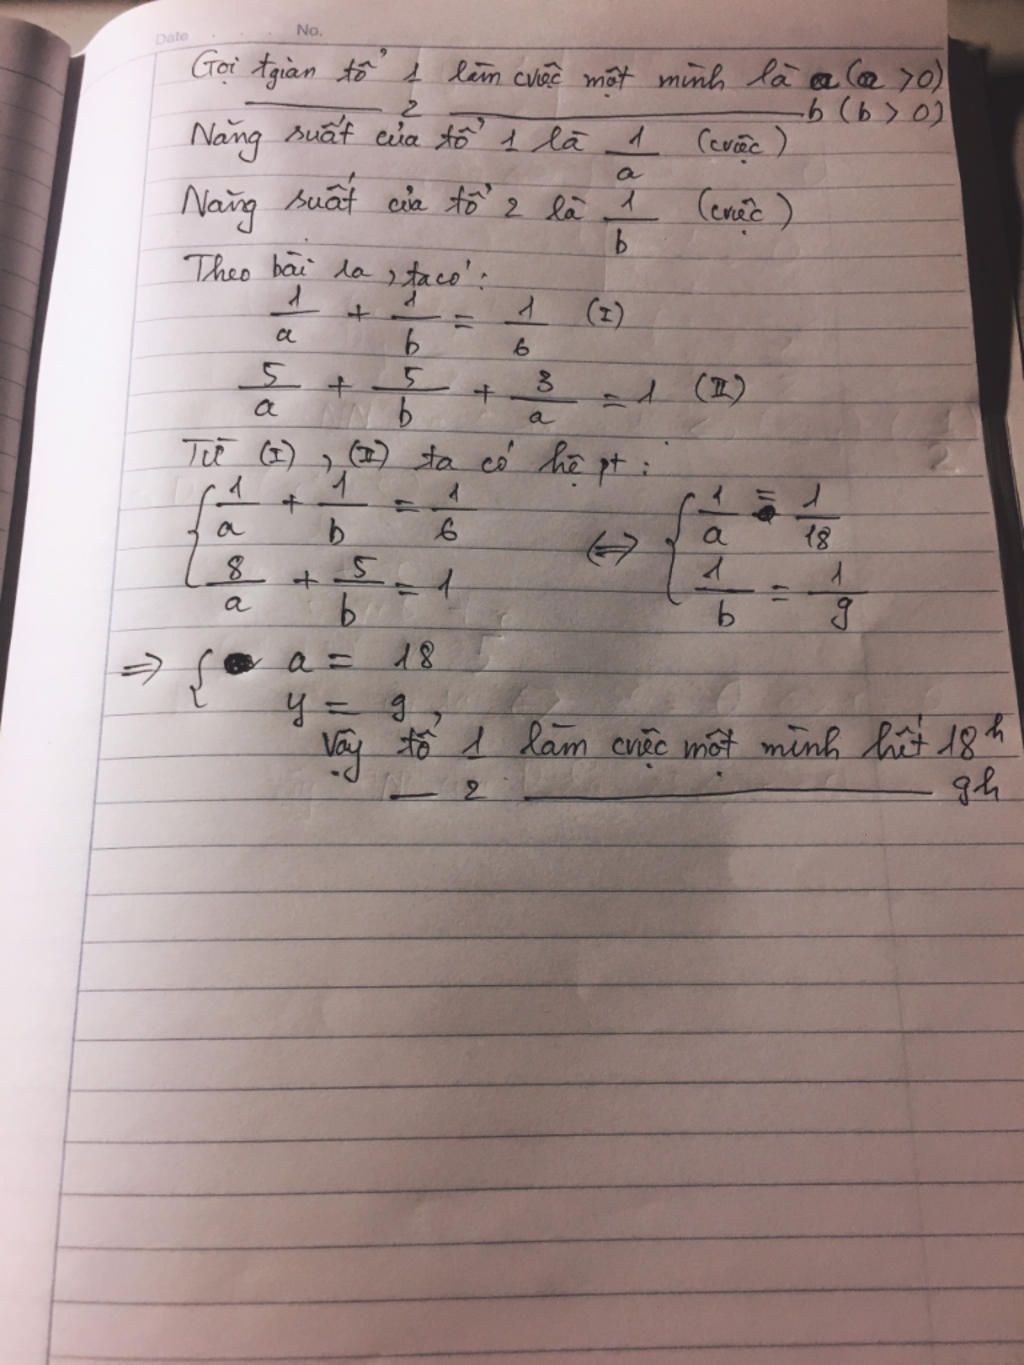 Date . . . No.
Gọi tgian tổ 1 làm cviệc một mình là a (a > 0)
——— 2 ——— b (b > 0)
Năng suất của tổ 1 là 1/a (cviệc)
Năng suất của tổ 2 là 1/b (cviệc)
Theo bài ra, ta có:
1/a + 1/b = 1/6 (I)
5/a + 5/b + 3/a = 1 (II)
Từ (I), (II) ta có hệ pt:
{ 1/a + 1/b = 1/6 ⇔ { 1/a = 1/18
8/a + 5/b = 1 1/b = 1/9
⇒ { a = 18
y = 9,
Vậy tổ 1 làm cviệc một mình hết 18h
— 2 ——— 9h